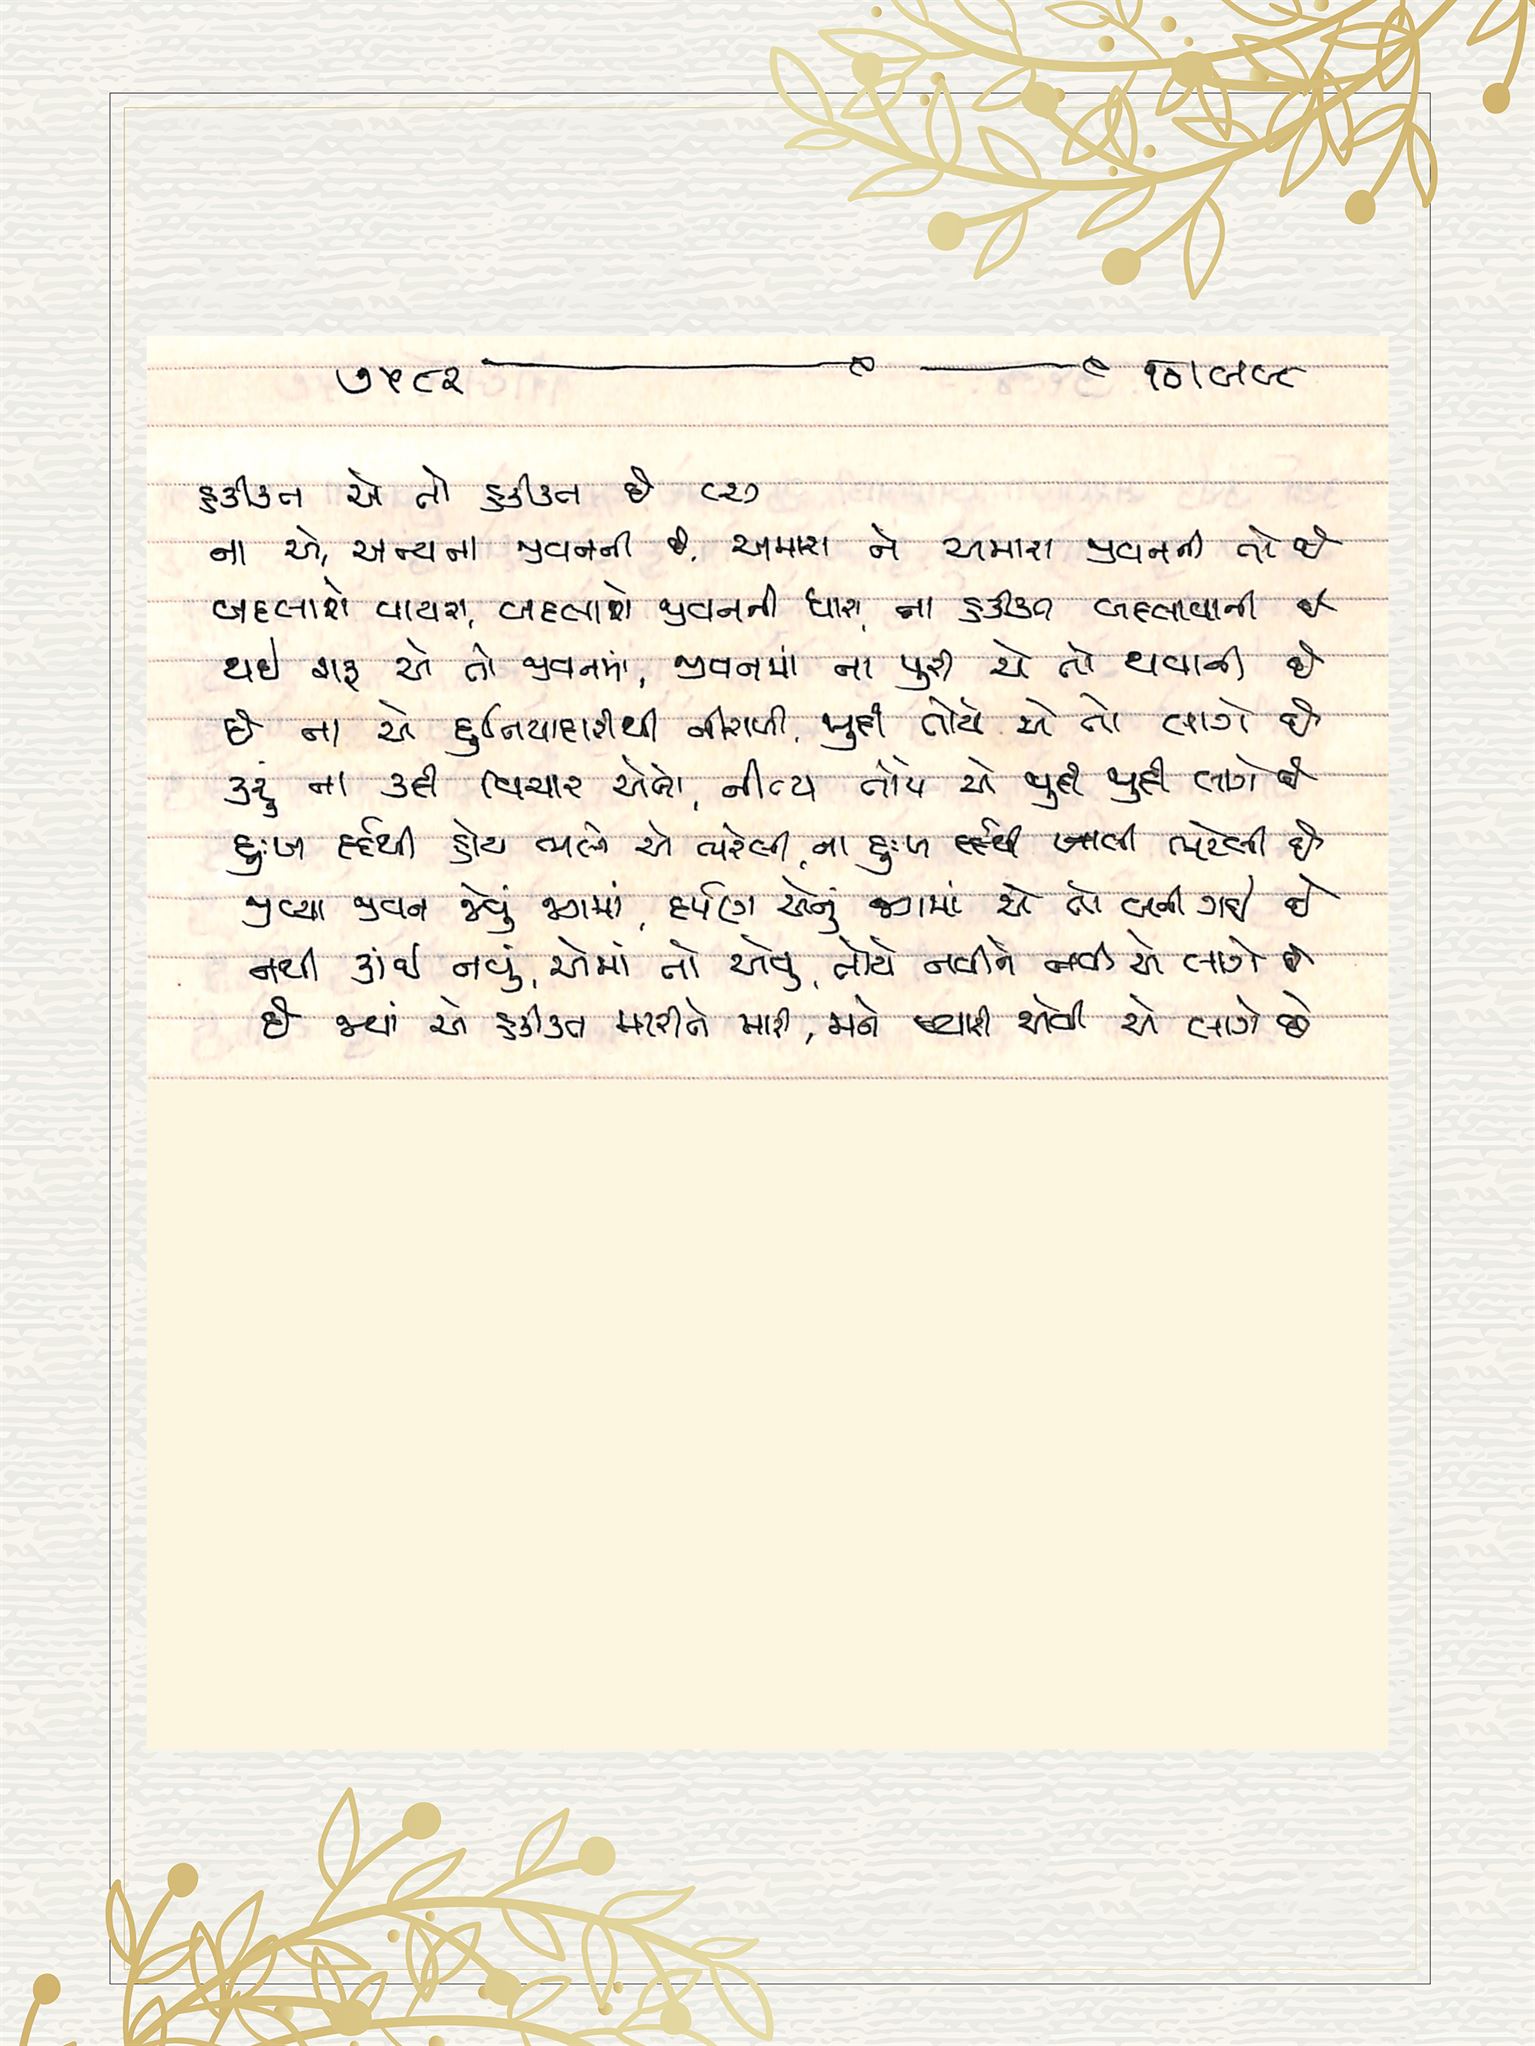 ૭૫૮૨ ૧૦|૯|૯૮
હકીકત એ તો હકીકત છે (૨)
ના એ, અન્યના જીવનની છે. અમારા ને અમારા જીવનની તો છે
બદલાશે વાયરા, બદલાશે જીવનની ધારા, ના હકીકત બદલાવાની છે
થઇ શરૂ એ તો જીવનમાં, જીવનમાં ના પુરી એ તો થવાની છે
છે ના એ દુનિયાદારીથી નીરાળી, જુદી તોયે એ તો લાગે છે
કરું ના કદી વિચાર એનો, નીત્ય તોયે એ જુદી જુદી લાગે છે
દુઃખ દર્દથી હોય ભલે એ ભરેલી, ના દુઃખ દર્દથી ખાલી ભરેલી છે
જીવ્યા જીવન જેવું જગમાં, દર્પણ એનું જગમાં એ તો બની ગઇ છે
નથી કાંઈ નવું, એમાં તો એવુ, તોયે નવીને નવી એ લાગે છે
છે જ્યાં એ હકીકત મારીને મારી, મને પ્યારી એવી એ લાગે છે